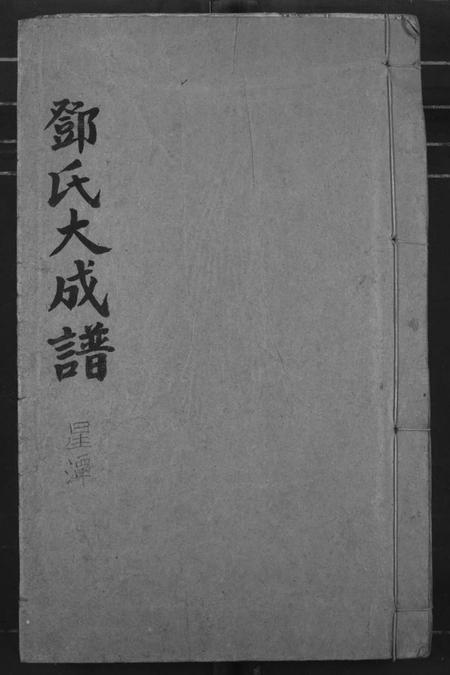 鄧氏大成譜
星潭